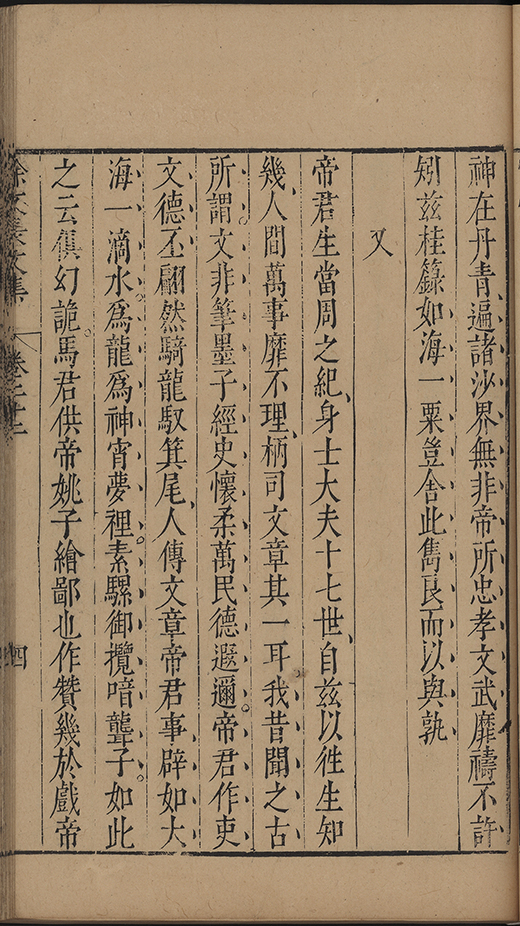 神在丹青遍諸沙界無非帝所忠孝文武靡禱不許
矧兹桂籙如海一粟豈舍此雋良而以與孰
又
帝君生當周之紀身士大夫十七世自兹以徃生知
幾人間萬事靡不理柄司文章其一耳我昔聞之古
所謂文非筆墨子經史懷柔萬民德遐邇帝君作吏
文德丕翩然騎龍馭箕尾人傳文章帝君事辟如大
海一滴水爲龍爲神宵夢裡素騾御攬喑聾子如此
之云俱幻詭馬君供帝姚子繪鄙也作贊幾於戲帝
徐文長文集
卷之廿二
四